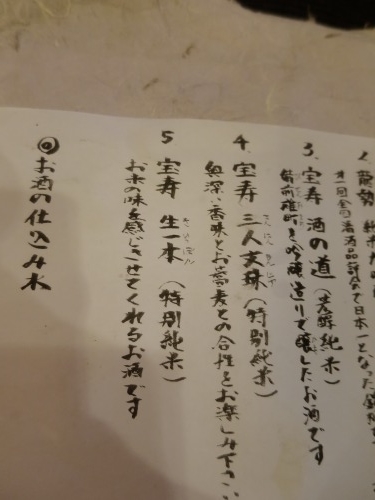 2. 龍勢
第一回全国清酒品評会で日本一となった
3. 宝寿 酒の道(発酵純米)
備前雄町を吟醸造りで醸したお酒です
4. 宝寿 三人文殊(特別純米)
さんにんもんじゅ
奥深い香味とお蕎麦との合性をお楽しみ下さい
5 宝寿 生一本(特別純米)
きいっぽん
お米の味を感じさせてくれるお酒です
◎お酒の仕込み水